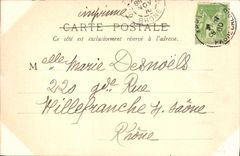 imprimé
CARTE POSTALE
Ce côté est exclusivement réservé à l'adresse.
Melle Marie Desnoëls
220 gde Rue
Villefranche s/ Saône
Rhône